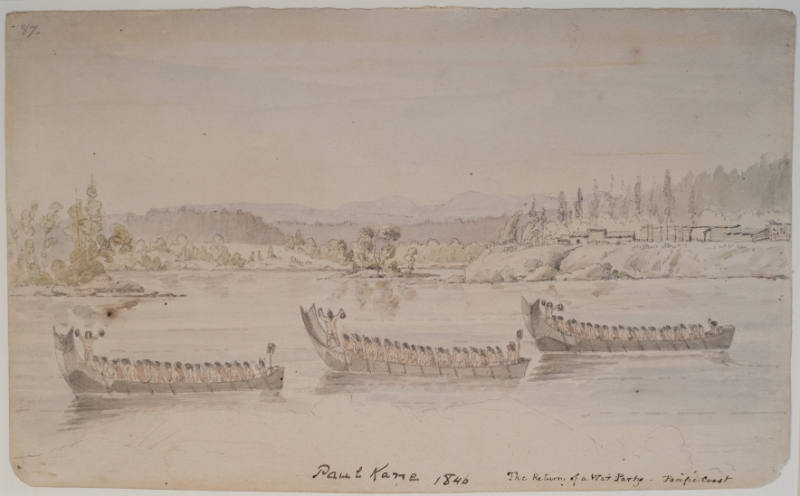 87.
Paul Kane 1846
The Return of a War Party - Pacific Coast